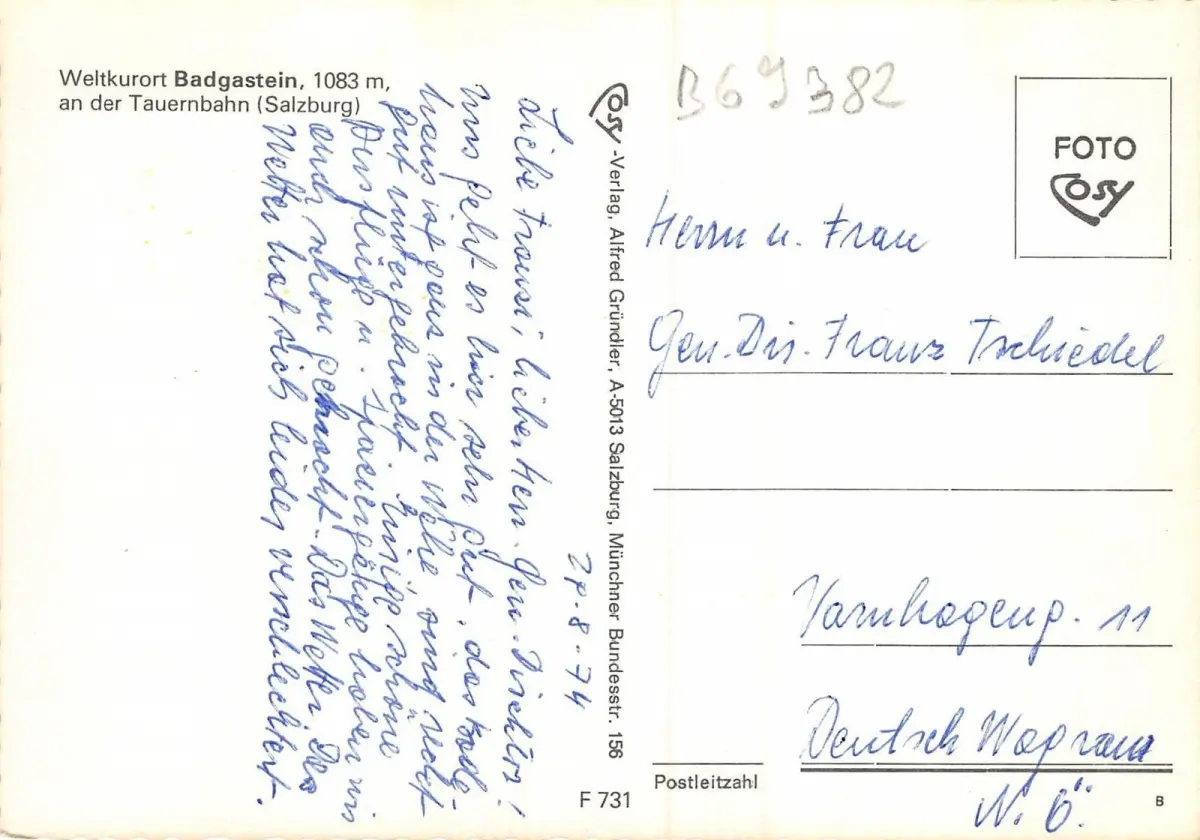 Weltkurort Badgastein, 1083 m,
an der Tauernbahn (Salzburg)
27.8.-74
Liebe Frau, lieber Herr Gen. Direktor!
Uns geht es hier sehr gut, das Bade-
haus ist ganz in der Nähe sind recht
gut untergebracht. Einige schöne
Ausflüge u. Spaziergänge haben wir
auch schon gemacht. Das Wetter. Das
Wetter hat sich leider verschlechtert.
Cosy-Verlag, Alfred Gründler, A-5013 Salzburg, Münchner Bundesstr. 156
F 731
B69382
FOTO
Cosy
Herrn u. Frau
Gen. Dir. Franz Tschiedel
Varnhageng. 11
Deutsch Wagram
N. Ö.
Postleitzahl
B